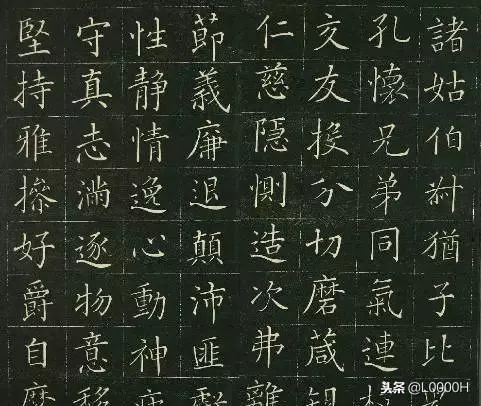 諸姑伯叔猶子比
孔懷兄弟同氣連
交友投分切磨箴
仁慈隱惻造次弗離
節義廉退顛沛匪
性靜情逸心動神
守真志滿逐物意移
堅持雅操好爵自
头条 @L0000H